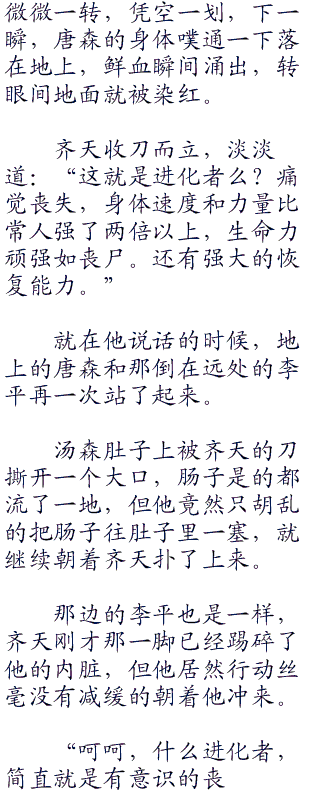 微微一转，凭空一划，下一
瞬，唐森的身体噗通一下落
在地上，鲜血瞬间涌出，转
眼间地面就被染红。
齐天收刀而立，淡淡
道：“这就是进化者么？痛
觉丧失，身体速度和力量比
常人强了两倍以上，生命力
顽强如丧尸。还有强大的恢
复能力。”
就在他说话的时候，地
上的唐森和那倒在远处的李
平再一次站了起来。
汤森肚子上被齐天的刀
撕开一个大口，肠子是的都
流了一地，但他竟然只胡乱
的把肠子往肚子里一塞，就
继续朝着齐天扑了上来。
那边的李平也是一样，
齐天刚才那一脚已经踢碎了
他的内脏，但他居然行动丝
毫没有减缓的朝着他冲来。
“呵呵，什么进化者，
简直就是有意识的丧